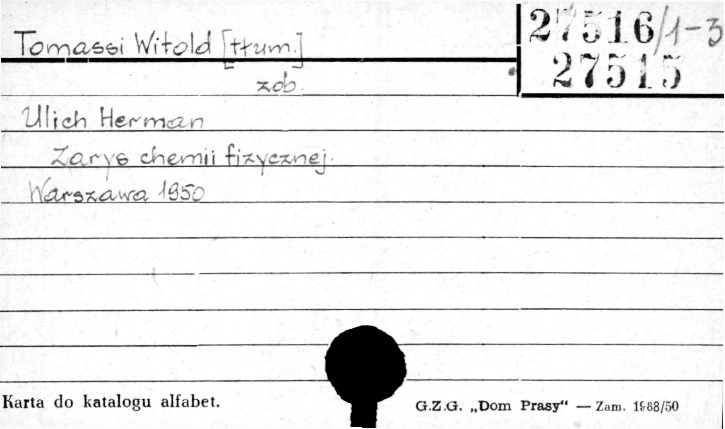 Tomassi Witold [tłum.]
27516/1-3
27515
zob.
Ulich Herman
Zarys chemii fizycznej.
Warszawa 1950
Karta do katalogu alfabet.
G.Z.G. „Dom Prasy“ — Zam. 1988/50